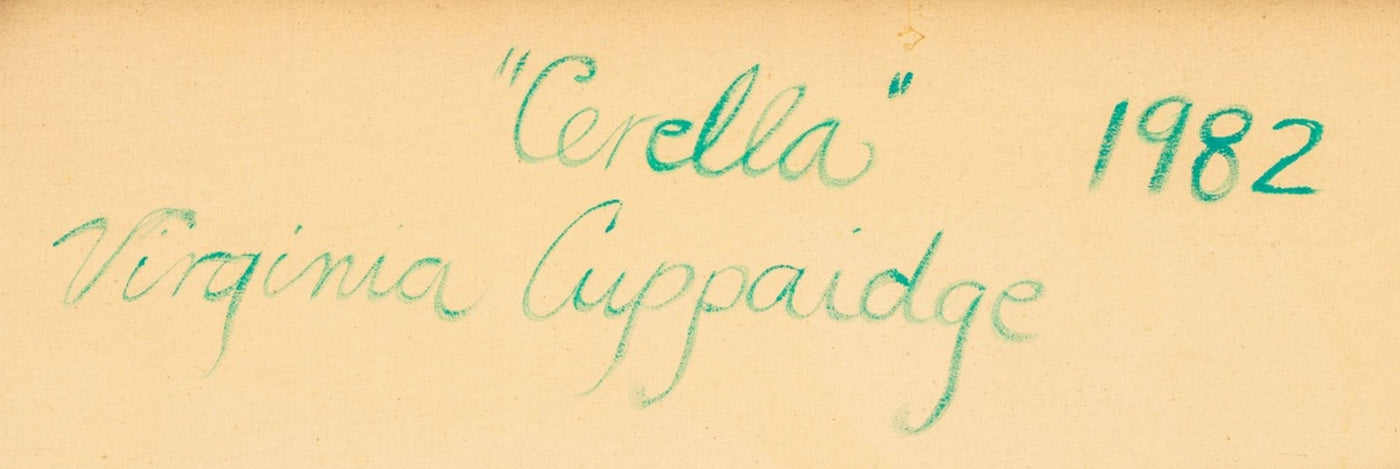 "Cerella" 1982
Virginia Cuppaidge